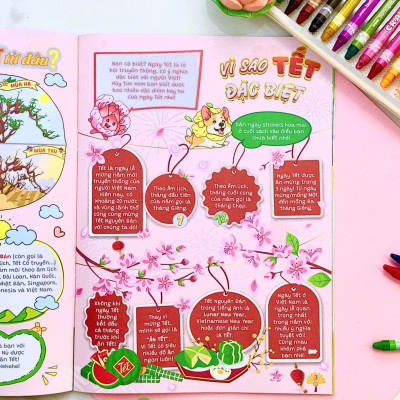 từ đâu?
MÙA HẠ
MÙA THU
Bạn có biết? Ngày Tết là lễ
hội truyền thống, có ý nghĩa
đặc biệt với người Việt!
Hãy tìm xem bạn biết được
bao nhiêu đặc điểm hay ho
của ngày Tết nhé!
VÌ SAO TẾT
ĐẶC BIỆT
Dán ngay stickers hoa mai
ở cuối sách vào điều bạn
chưa biết nhé!
Tết là ngày lễ
mừng năm mới
truyền thống của
người Việt Nam.
Hiện nay, có
khoảng 20 nước
và vùng lãnh thổ
cũng cùng mừng
Tết Nguyên Đán
với chúng ta đó!
Theo âm lịch,
tháng đầu tiên
của năm gọi là
tháng Giêng.
Theo âm lịch,
tháng cuối cùng
của năm gọi là
tháng Chạp.
Ngày Tết được
ăn mừng trong
3 ngày! Từ ngày
mùng/mồng Một
đến mồng Ba
tháng Giêng.
Không khí
ngày Tết
thường
bắt đầu
cả tháng
trước khi
ăn Tết!
Thay vì
mừng Tết,
mình sẽ gọi là
"ĂN TẾT".
Vì Tết có siêu
nhiều đồ ăn
ngon luôn!
Tết Nguyên Đán
trong tiếng Anh là
Lunar New Year,
Vietnamese New Year
hoặc đơn giản chỉ
là Tết.
Ngày Tết ở
Việt Nam là
ngày lễ quan
trọng nhất
trong năm với
nhiều ý nghĩa
tuyệt vời!
Cùng nhau
khám phá
bạn nhé!
Tết
3
Đán (còn gọi là
Tết Cổ truyền...)
năm mới theo âm lịch
Đài Loan, Hàn Quốc,
Nhật Bản, Singapore,
Indonesia và Việt Nam.